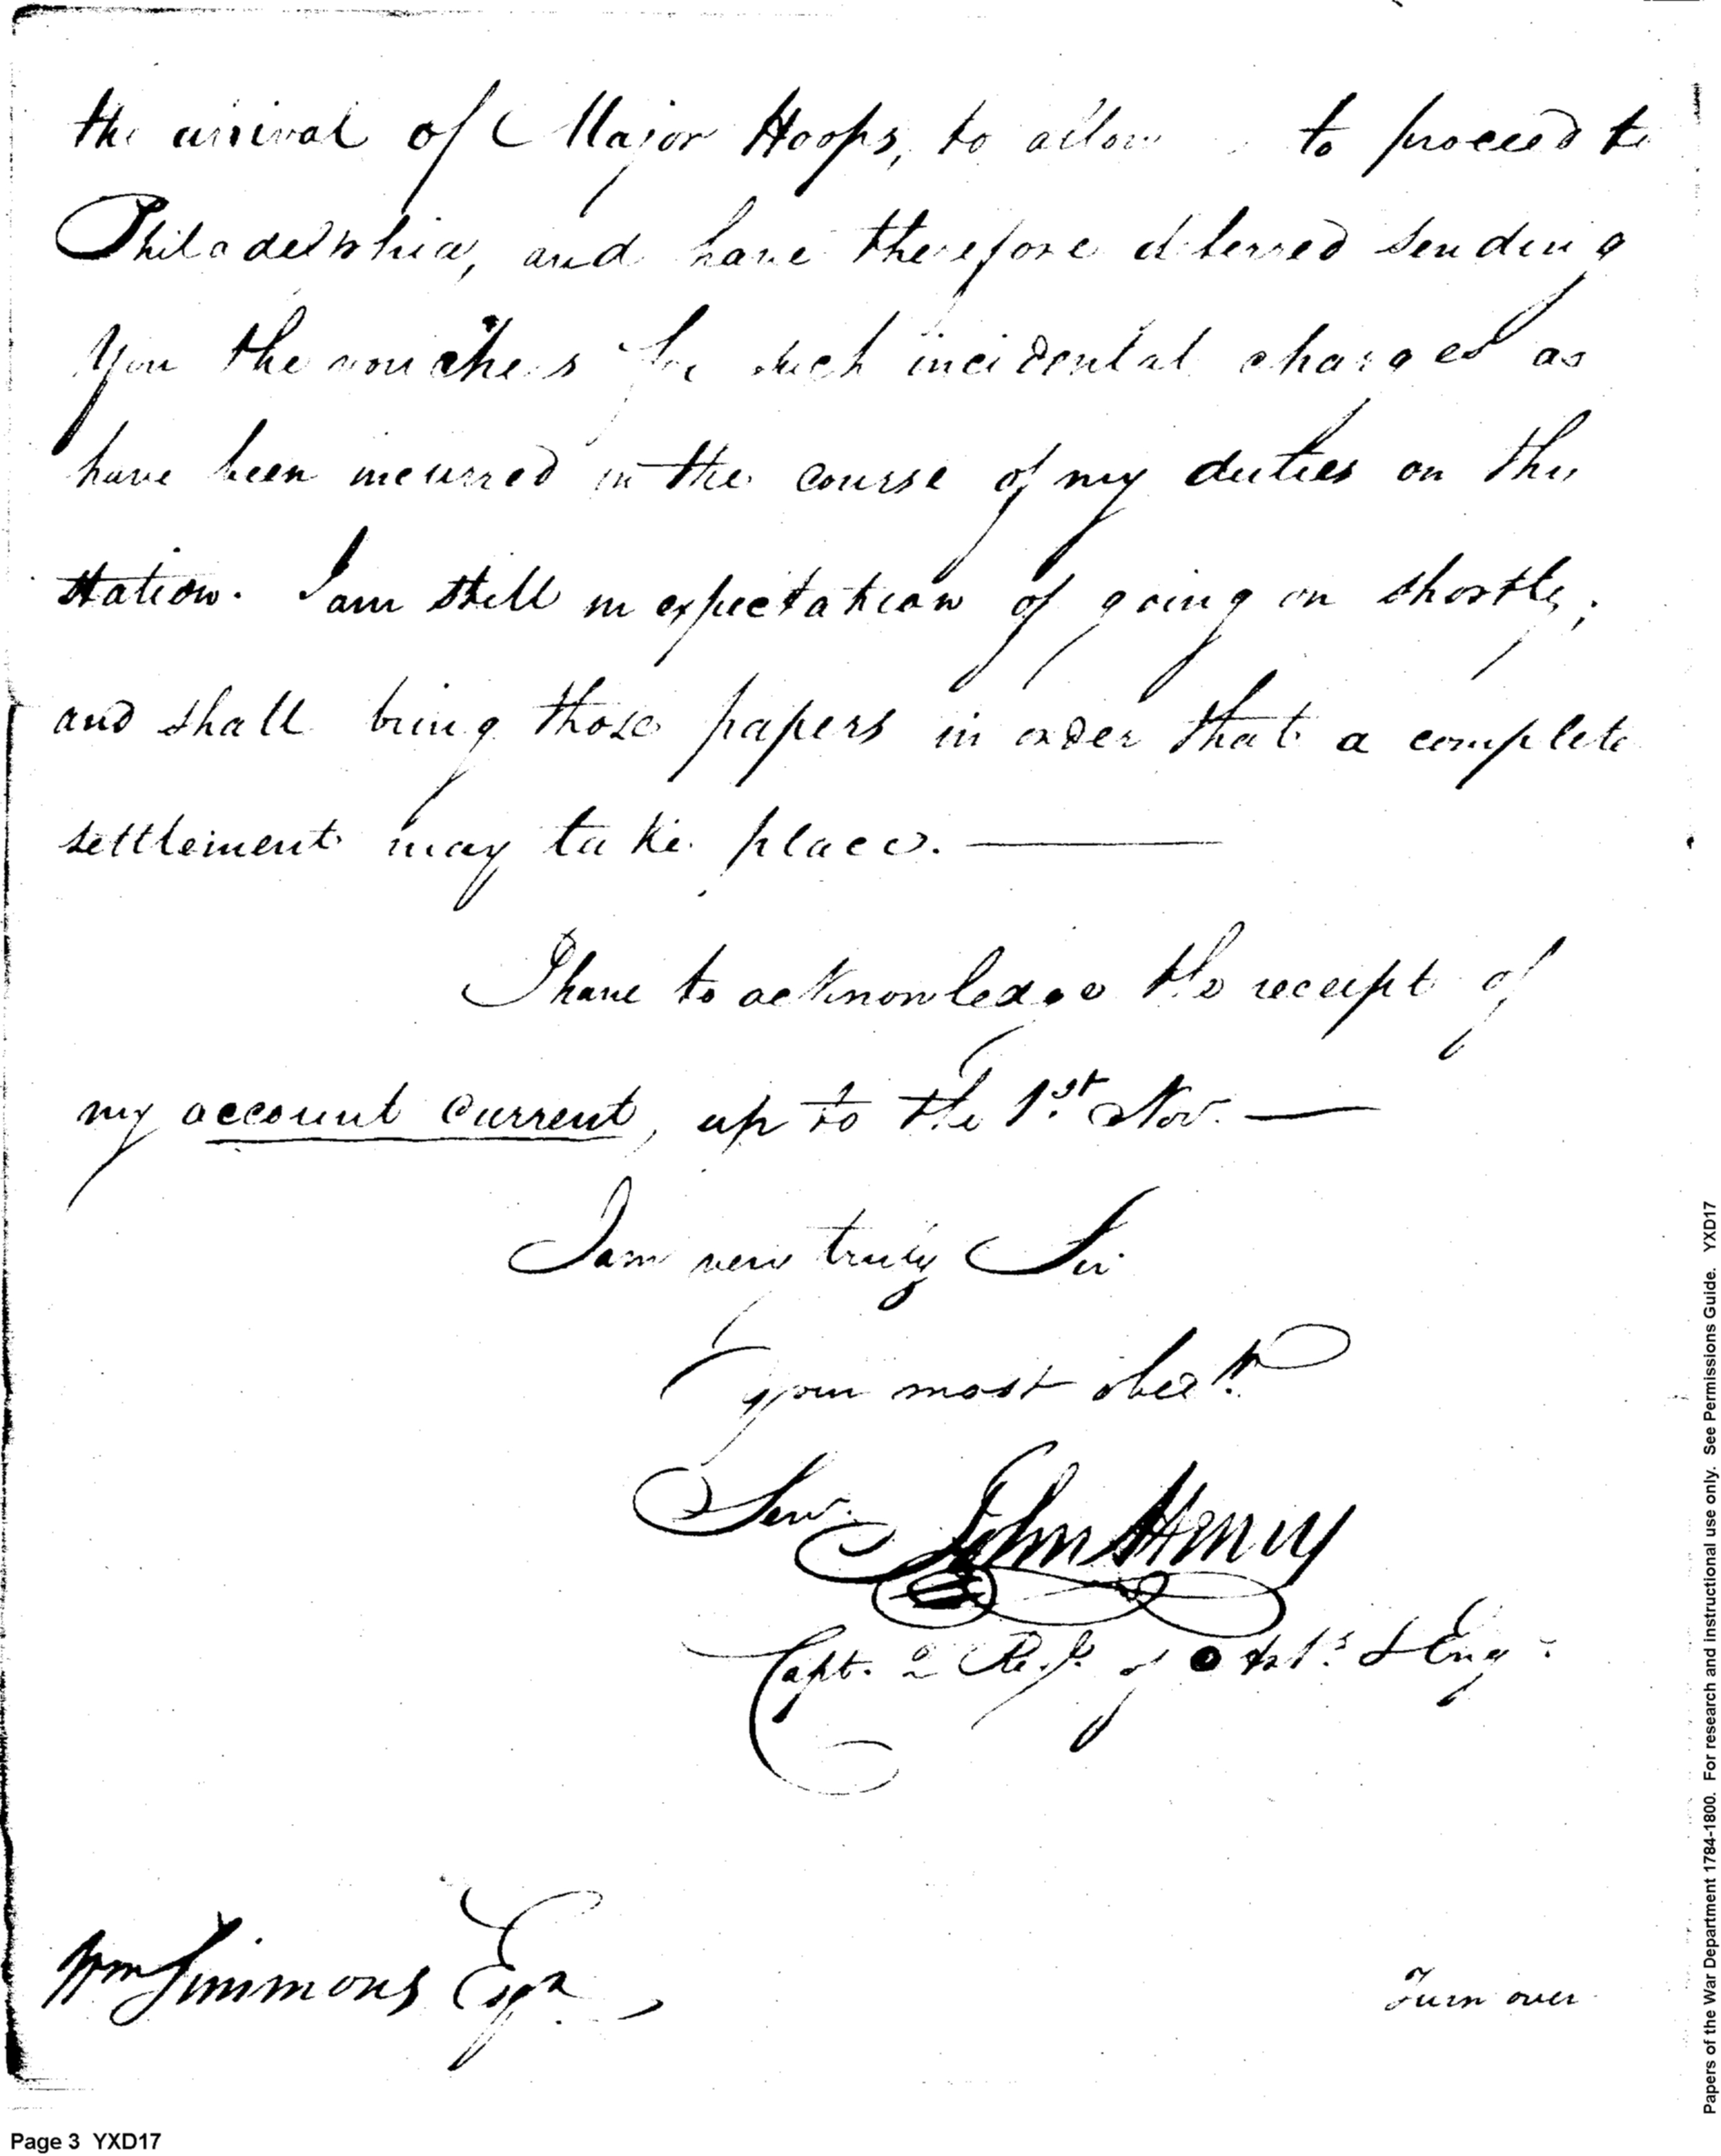 the arrival of Major Hoops, to allow to proceed to
Philadelphia, and have therefore deferred sending
you the vouchers for such incidental charges as
have been incurred in the course of my duties on this
station. I am still in expectation of going on shortly,
and shall bring those papers in order that a complete
settlement may take place. —
I have to acknowledge the receipt of
my account current, up to the 1st. Nov. —
I am very truly Sir
your most obedt.
Serv.
John Henry
Capt. 2 Regt. of Arts. & Eng.
Wm Simmons Esqr.,
Turn over
Page 3 YXD17
Papers of the War Department 1784-1800. For research and instructional use only. See Permissions Guide. YXD17